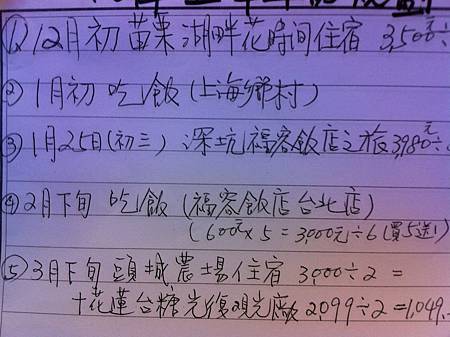 ① 12月初 苗栗 湖畔花時間住宿 3,500元÷
② 1月初 吃飯 (上海鄉村)
③ 1月25日(初三) 深坑福容飯店之旅 3,980元÷
④ 2月下旬 吃飯 (福容飯店台北店)
(600元×5=3,000元÷6(買5送1)
⑤ 3月下旬 頭城農場住宿 3,000÷2=
+花蓮台糖光復觀光廠 2,099÷2=1,049.